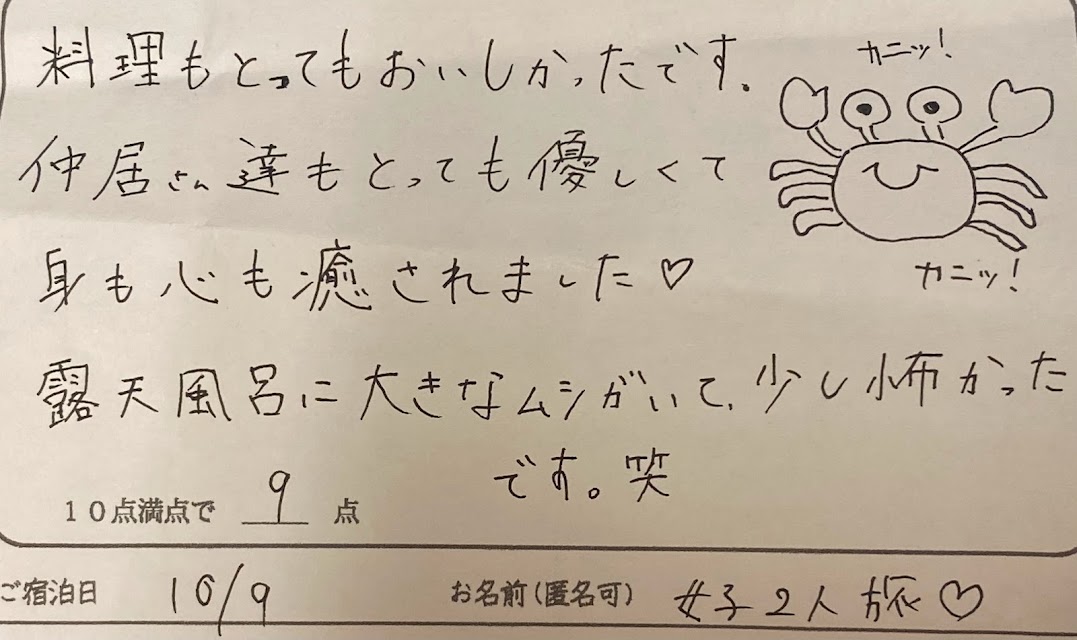 料理もとってもおいしかったです。
カニッ!
仲居さん達もとっても優しくて
身も心も癒されました♡
カニッ!
露天風呂に大きなムシがいて、少し怖かった
です。笑
10点満点で 9 点
ご宿泊日 10/9 お名前(匿名可) 女子2人旅♡